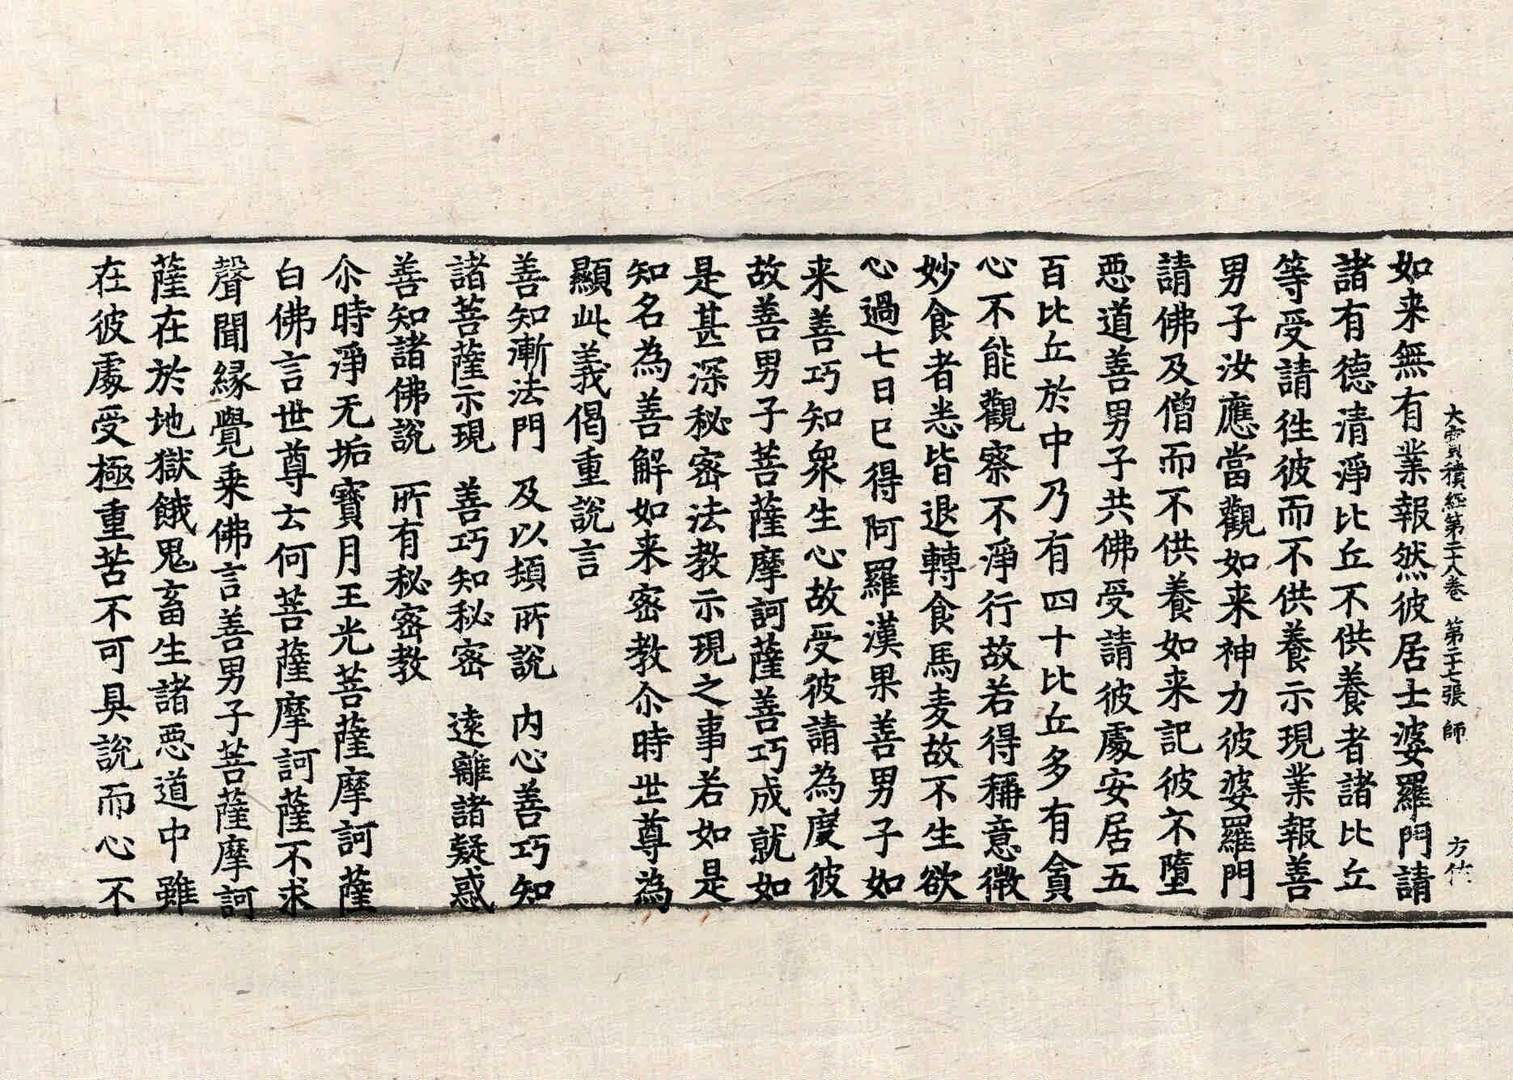 大寶積經第二十八卷 第二十七張 師
如来無有業報然彼居士婆羅門請
諸有德清淨比丘不供養者諸比丘
等受請徃彼而不供養示現業報善
男子汝應當觀如来神力彼婆羅門
請佛及僧而不供養如来記彼不墮
惡道善男子共佛受請彼處安居五
百比丘於中乃有四十比丘多有貪
心不能觀察不淨行故若得稱意微
妙食者悉皆退轉食馬麦故不生欲
心過七日已得阿羅漢果善男子如
来善巧知衆生心故受彼請為度彼
故善男子菩薩摩訶薩善巧成就如
是甚深秘密法教示現之事若如是
知名為善解如来密教尒時世尊為
顯此義偈重說言
善知漸法門 及以頓所說 内心善巧知
諸菩薩示現 善巧知秘密 遠離諸疑惑
善知諸佛說 所有秘密教
尒時淨无垢寶月王光菩薩摩訶薩
白佛言世尊云何菩薩摩訶薩不求
聲聞縁覺乗佛言善男子菩薩摩訶
薩在於地獄餓鬼畜生諸惡道中雖
在彼處受極重苦不可具說而心不